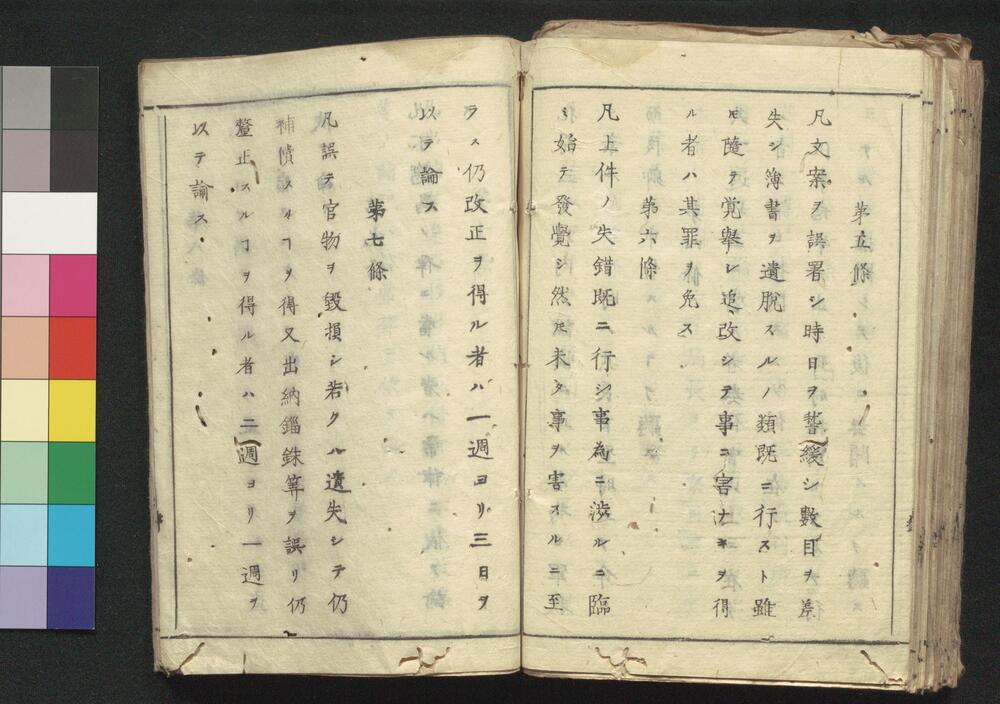 第五條
凡文案ヲ誤署シ時日ヲ誓緩シ數目ヲ差
失シ簿書ヲ遺脱スルノ類既ニ行スト雖
𪜈隨テ覚舉シ追改シテ事ニ害ナキヲ得
ル者ハ其罪ヲ免ス
第六條
凡上件ノ失錯既ニ行シ事為ニ渉ルニ臨
ミ始テ發覺シ然𪜈未タ事ヲ害スルニ至
ラス仍改正ヲ得ル者ハ一週ヨリ三日ヲ
以テ論ス
第七條
凡誤テ官物ヲ毀損シ若クハ遺失シテ仍
補償スルヿヲ得又出納錙銖筭ヲ誤リ仍
釐正スルヿヲ得ル者ハ二週ヨリ一週ヲ
以テ論ス